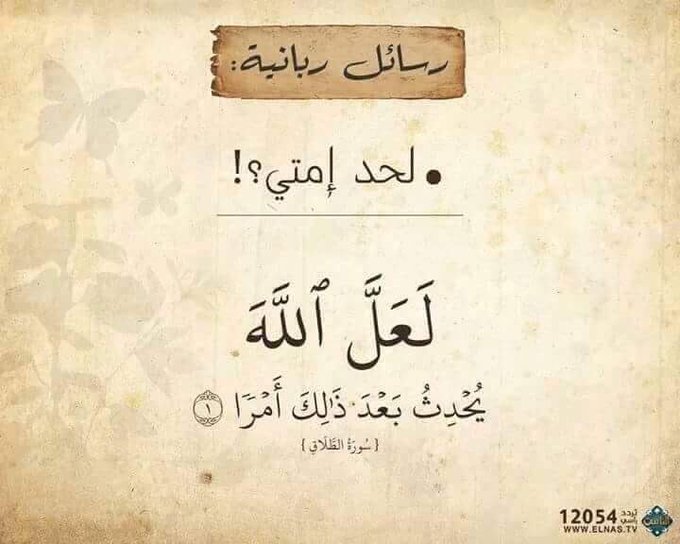 رسائل ربانية:
• لحد إمتي؟!
لَعَلَّ ٱللَّهَ
يُحْدِثُ بَعْدَ ذَٰلِكَ أَمْرًا ١
{ سُورَةُ الطَّلَاقِ }
تردد رأسي 12054
الناس
WWW.ELNAS.TV